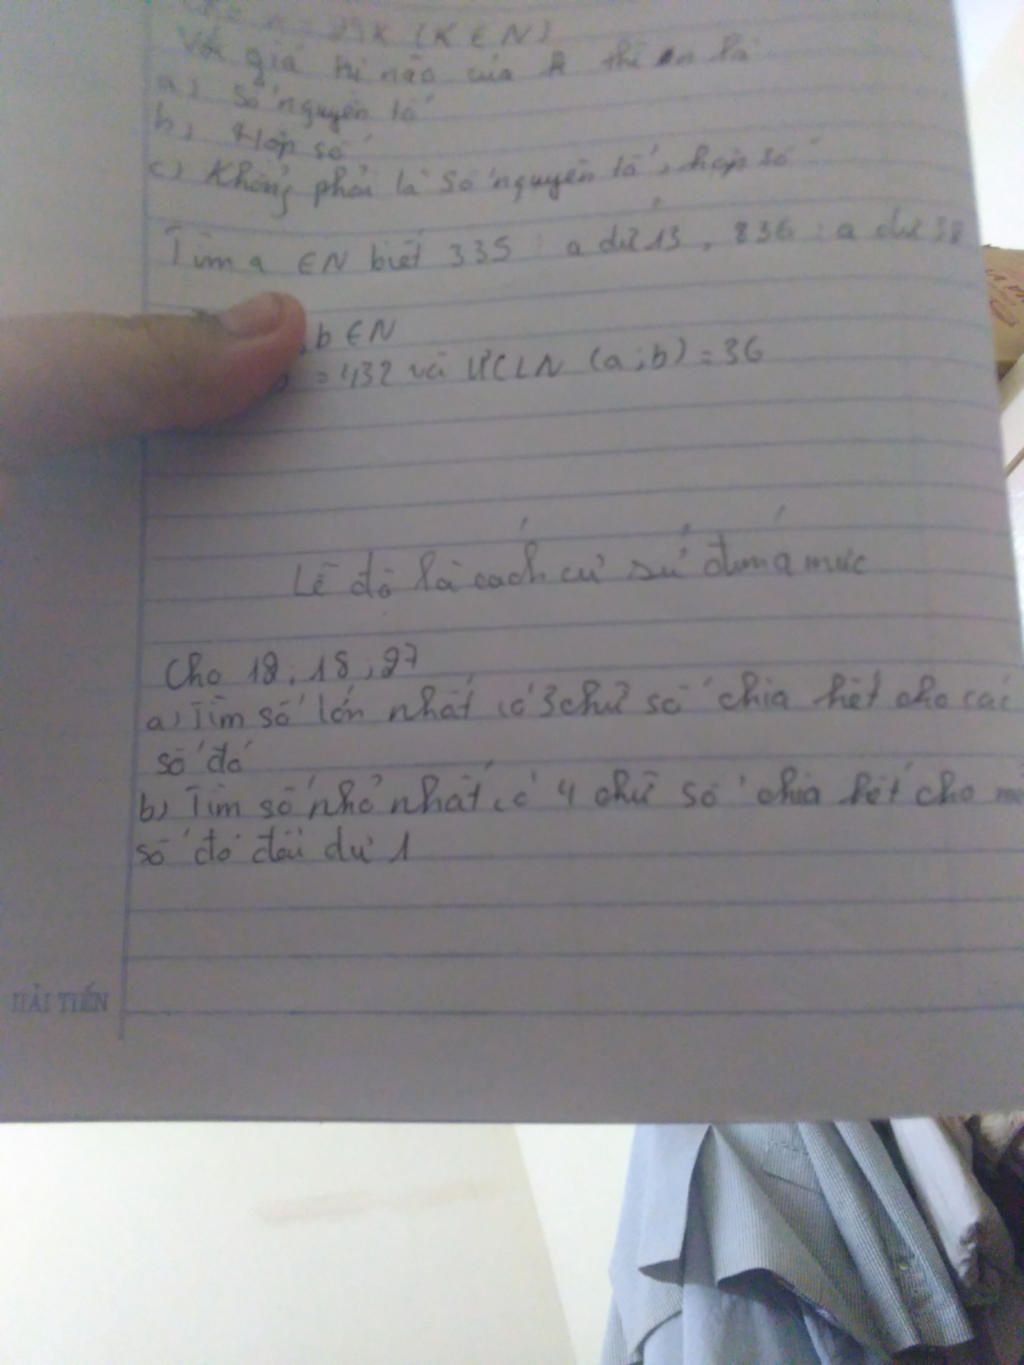 n = 29k (K ∈ N)
Với giá trị nào của k thì n là
a) Số nguyên tố
b) Hợp số
c) Không phải là số nguyên tố, hợp số
Tìm a ∈ N biết 335 : a dư 13, 836 : a dư 38
, b ∈ N
= 432 và ƯCLN (a;b) = 36
Lễ độ là cách cư xử đúng mức
Cho 12, 18, 27
a) Tìm số lớn nhất có 3 chữ số chia hết cho các
số đó
b) Tìm số nhỏ nhất có 4 chữ số chia hết cho
số đó đều dư 1
HẢI TIẾN